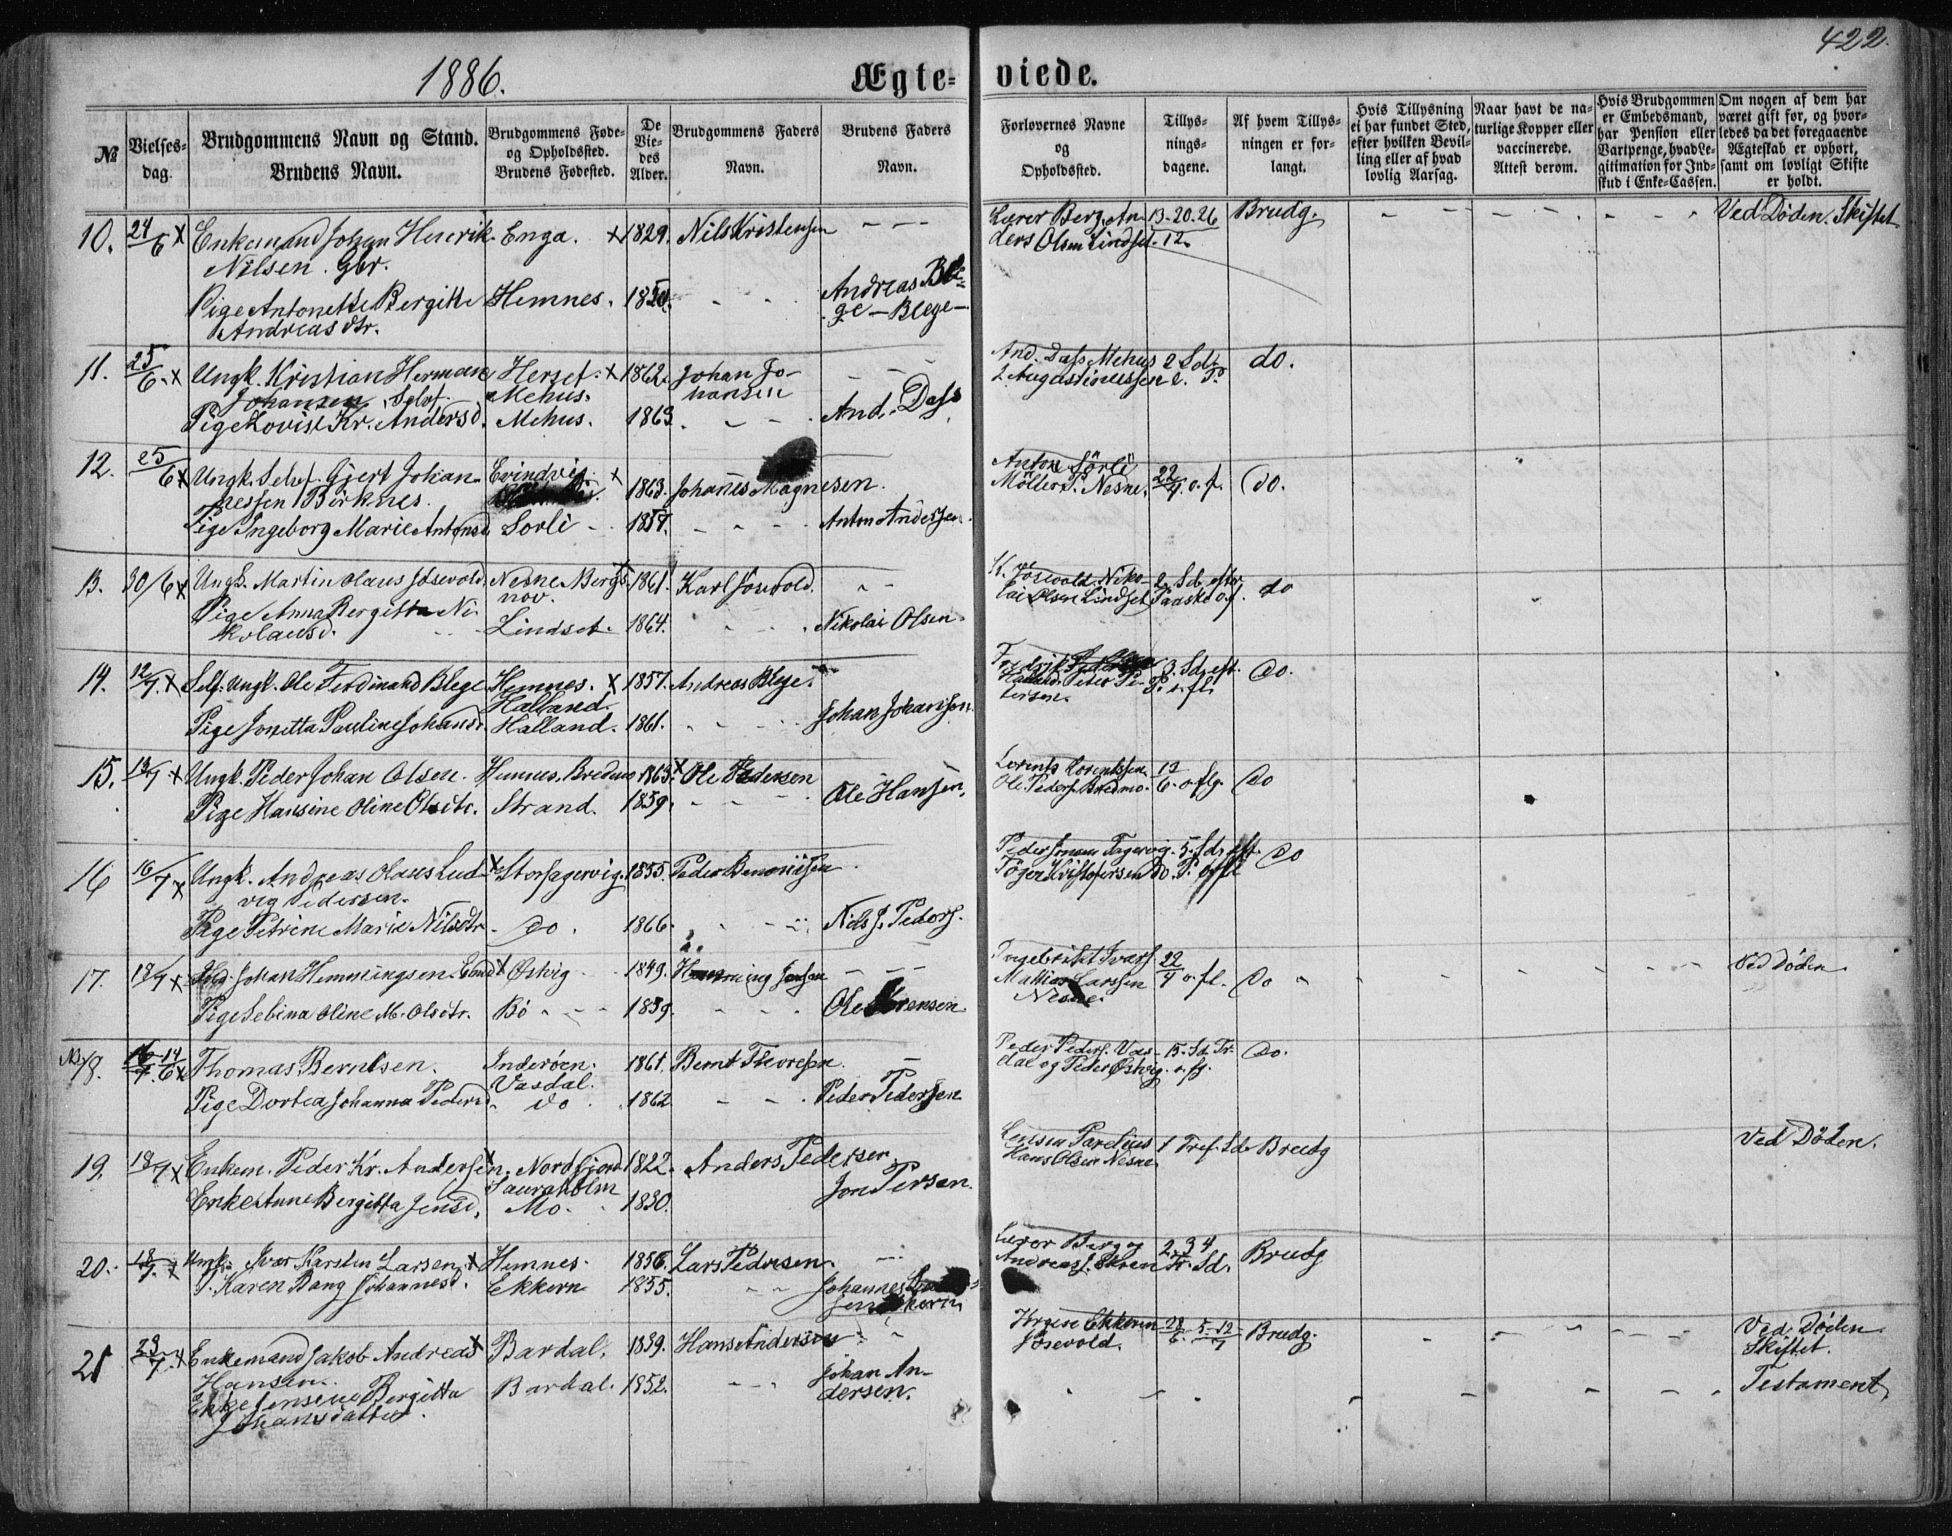 422.
1886.
Ægte- viede.
№
Vielses-dag.
Brudgommens Navn og Stand.
Brudens Navn.
Brudgommens Føde- og Opholdssted.
Brudens Fødested.
De Viedes Alder.
Brudgommens Faders Navn.
Brudens Faders Navn.
Forlovernes Navne og Opholdssted.
Tillysningsdagene.
Af hvem Tillysningen er forlangt.
Hvis Tillysning ei har fundet Sted, efter hvilken Bevilling eller af hvad lovlig Aarsag.
Naar havt de naturlige Kopper eller vaccinerede. Attest derom.
Hvis Brudgommen er Embedsmand, har Pension eller Vartpenge, hvad Legitimation for Indskud i Enke-Cassen.
Om nogen af dem har været gift før, og hvorledes da det foregaaende Ægteskab er ophørt, samt om lovligt Skifte er holdt.
10. 24/6 x Enkemand Johan Henrik Enga. x 1829. Nils Kristensen - - - Lærer Berg, An- 13-20.26 Brudg. Ved Døden. Skiftet
Nilsen. gbr. ders Olsen Lindset. 12.
Pige Antonette Bergitte Hemnes. 1850. - - Andreas Ble-
Andreasdtr. ge - Blege -
11. 25/6 x Ungk. Kristian Herman Herset. x 1862. Johan Jo- - - And. Dass Mehus 2 Sd. do.
Johansen, Selvf. Mehus. hansen Augustinussen e. P.
Pige Lovise Kr. Andersd. Mehus. 1863. - - And. Dass
12. 25/6 x Ungk. Selvf. Gjert Johan- Evindvig. x 1863. Johanes Magnesen. Anton Sörli 22/4 o. f. do.
nessen Birknes. Möller P. Nesne.
Pige Ingeborg Marie Antonsd. Sorli - 1857. - - Anton Andersen.
13. 30/6 x Ungk. Martin Olaus Jösevold. Nesne Bergs- 1861. Karl Josevold. - - K. Jösevold. Niko- 2. Sd. efter do
nov. lai Olsen Lindset Paaske o.f.
Pige Anna Bergitta Ni- Lindset. 1864. - - Nikolai Olsen.
kolausd.
14. 12/7 x Self. Ungk. Ole Ferdinand Blege Hemnes. x 1857. Andreas Blege. Fredrik 3. Sd. eft. do.
Halland. Halland. Peter Pe- P. o. fl.
tersen.
Pige Jonetta Pauline Johansd. Halland. 1861. - - Johan Johansen.
15. 13/7 x Ungk. Peder Johan Olsen. Hemnes. Bredmo 1863. x Ole Pedersen Lorents Lorentssen 13/6. o. flg. do
Ole Peders. Bredmo.
Pige Hansine Oline Olsdtr. Strand. 1859. - - Ole Hansen.
16 16/7 x Ungk. Andreas Olaus Lud- x Storfagervig. 1855. Peder Benonisen Peder Jonsen Fagervig. 5. Sd. eft. do
vig Pedersen. Töger Kristofersen do. P. o. fl.
Pige Petrine Marie Nilsdtr. do. 1866. - - Nils J. Peders.
17. 18/7 x Johan Hemmingsen Lund x Østvig - 1849. Hemming Jensen - - - Ingebrikt Ivars. 22/4 o. fl. do Ved Døden.
Mathias Larssen
Nesne.
Pige Sebina Oline M. Olsdtr. Bö - - - 1839. - - Ole Sörensen.
18. 14/6 x Thomas Berntsen. Inderøen. 1861. Bernt Thoresen. - Peder Peders. Vas- 15. Sd. Tr. do.
Vasdal. dal og Peder Østvig. o. fl.
Pige Dortea Johanna Pedersd. do 1862 - - Peder Pedersen
19. 18/7 x Enkem. Peder Kr. Andersen. Nordfjord 1822. Anders Pedersen. Parelius 1 Tref. Sd. Brudg Ved Døden.
Hans Olsen Nesne
Enke Anne Bergitta Jensd. Mo. 1830. Jon Persen.
20. 18/7. x Ungk. Ivar Karsten Larsen. x Hemnes. 1856. Lars Pedersen - - Lærer Berg og 2. 3 4 Brudg
Andreas J. Ekren Tr. Sd.
P. Karen Dang Johannesd. Ekkern 1855. - - Johannes
21 23/7. x Enkemand Jakob Andreas x Bardal. 1839. Hans Andersen - Ekkern 28/6. 5-12/7 Brudg. Ved Døden
Hansen. Jösevold. Skiftet.
Enke Jensine Bergitta Bardal. 1852. - - Johan An- Testament
Johansdatter. dersen.